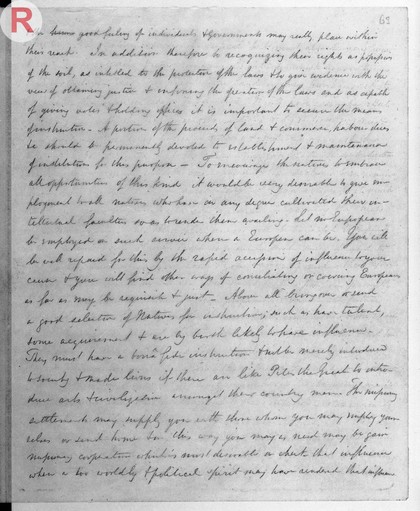 R
69
good feeling of individuals & Governments may really place within
their reach. In addition therefore to recognizing their rights as possessors
of the soil, as entitled to the protection of the laws & to give evidence with the
view of obtaining justice & informing the operation of the laws and as capable
of giving votes & holding offices it is important to secure the means
of instruction – A portion of the proceeds of land & commerce
should be permanently devoted to establishment & maintenance
of institutions for this purpose – To encourage the natives to embrace
all opportunities of this kind it would be very desirable to give em-
ployment to all natives who have in any degree cultivated their in-
tellectual faculties so as to render them availing. Let no European
be employed in such service where a can be. You will
be well repaid for this by the rapid accession of influence to your
cause & you will find other ways of conciliating or Europeans
as far as may be requisite & just – Above all bring over or send
a good selection of Natives for instruction, such as have talent,
some acquirement & are by birth likely to have influence.
They must have a bona fide instruction & not be merely introduced
to society & made lions if there are like Peter the Great to intro-
duce arts & civilization amongst their country men. The missionary
settlements may supply you with whom you may employ your-
selves or send home In this way you may as need may be gain
missionary cooperation which is most desirable or check that influence
when a too worldly & political spirit may have rendered that influence